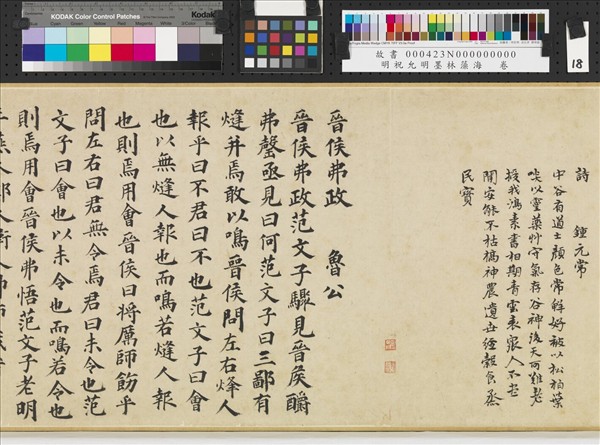 KODAK Color Control Patches
Kodak
故書 000423N000000000
明祝允明墨林藻海 卷
18
詩 鍾元常
中谷有道士顏色常鮮好被以松柏葉
啖以靈藥艸守氣存谷神後天可難老
授我鴻素書相期青雲表眾人不
安能不枯槁神農遺世經穀食烝
民寶
晉侯弗政 魯公
晉侯弗政范文子驟見晉侯
弗罄亟見曰何范文子曰三鄙有
燧并焉敢以鳴晉侯問左右烽人
報乎曰不君曰不也范文子曰會
也以無燧人報也而鳴若燧人報
也則焉用會晉侯曰将厲師飭乎
問左右曰君無令焉君曰未令也范
文子曰會也以未令也而鳴若令也
則焉用會晉侯弗悟范文子老明